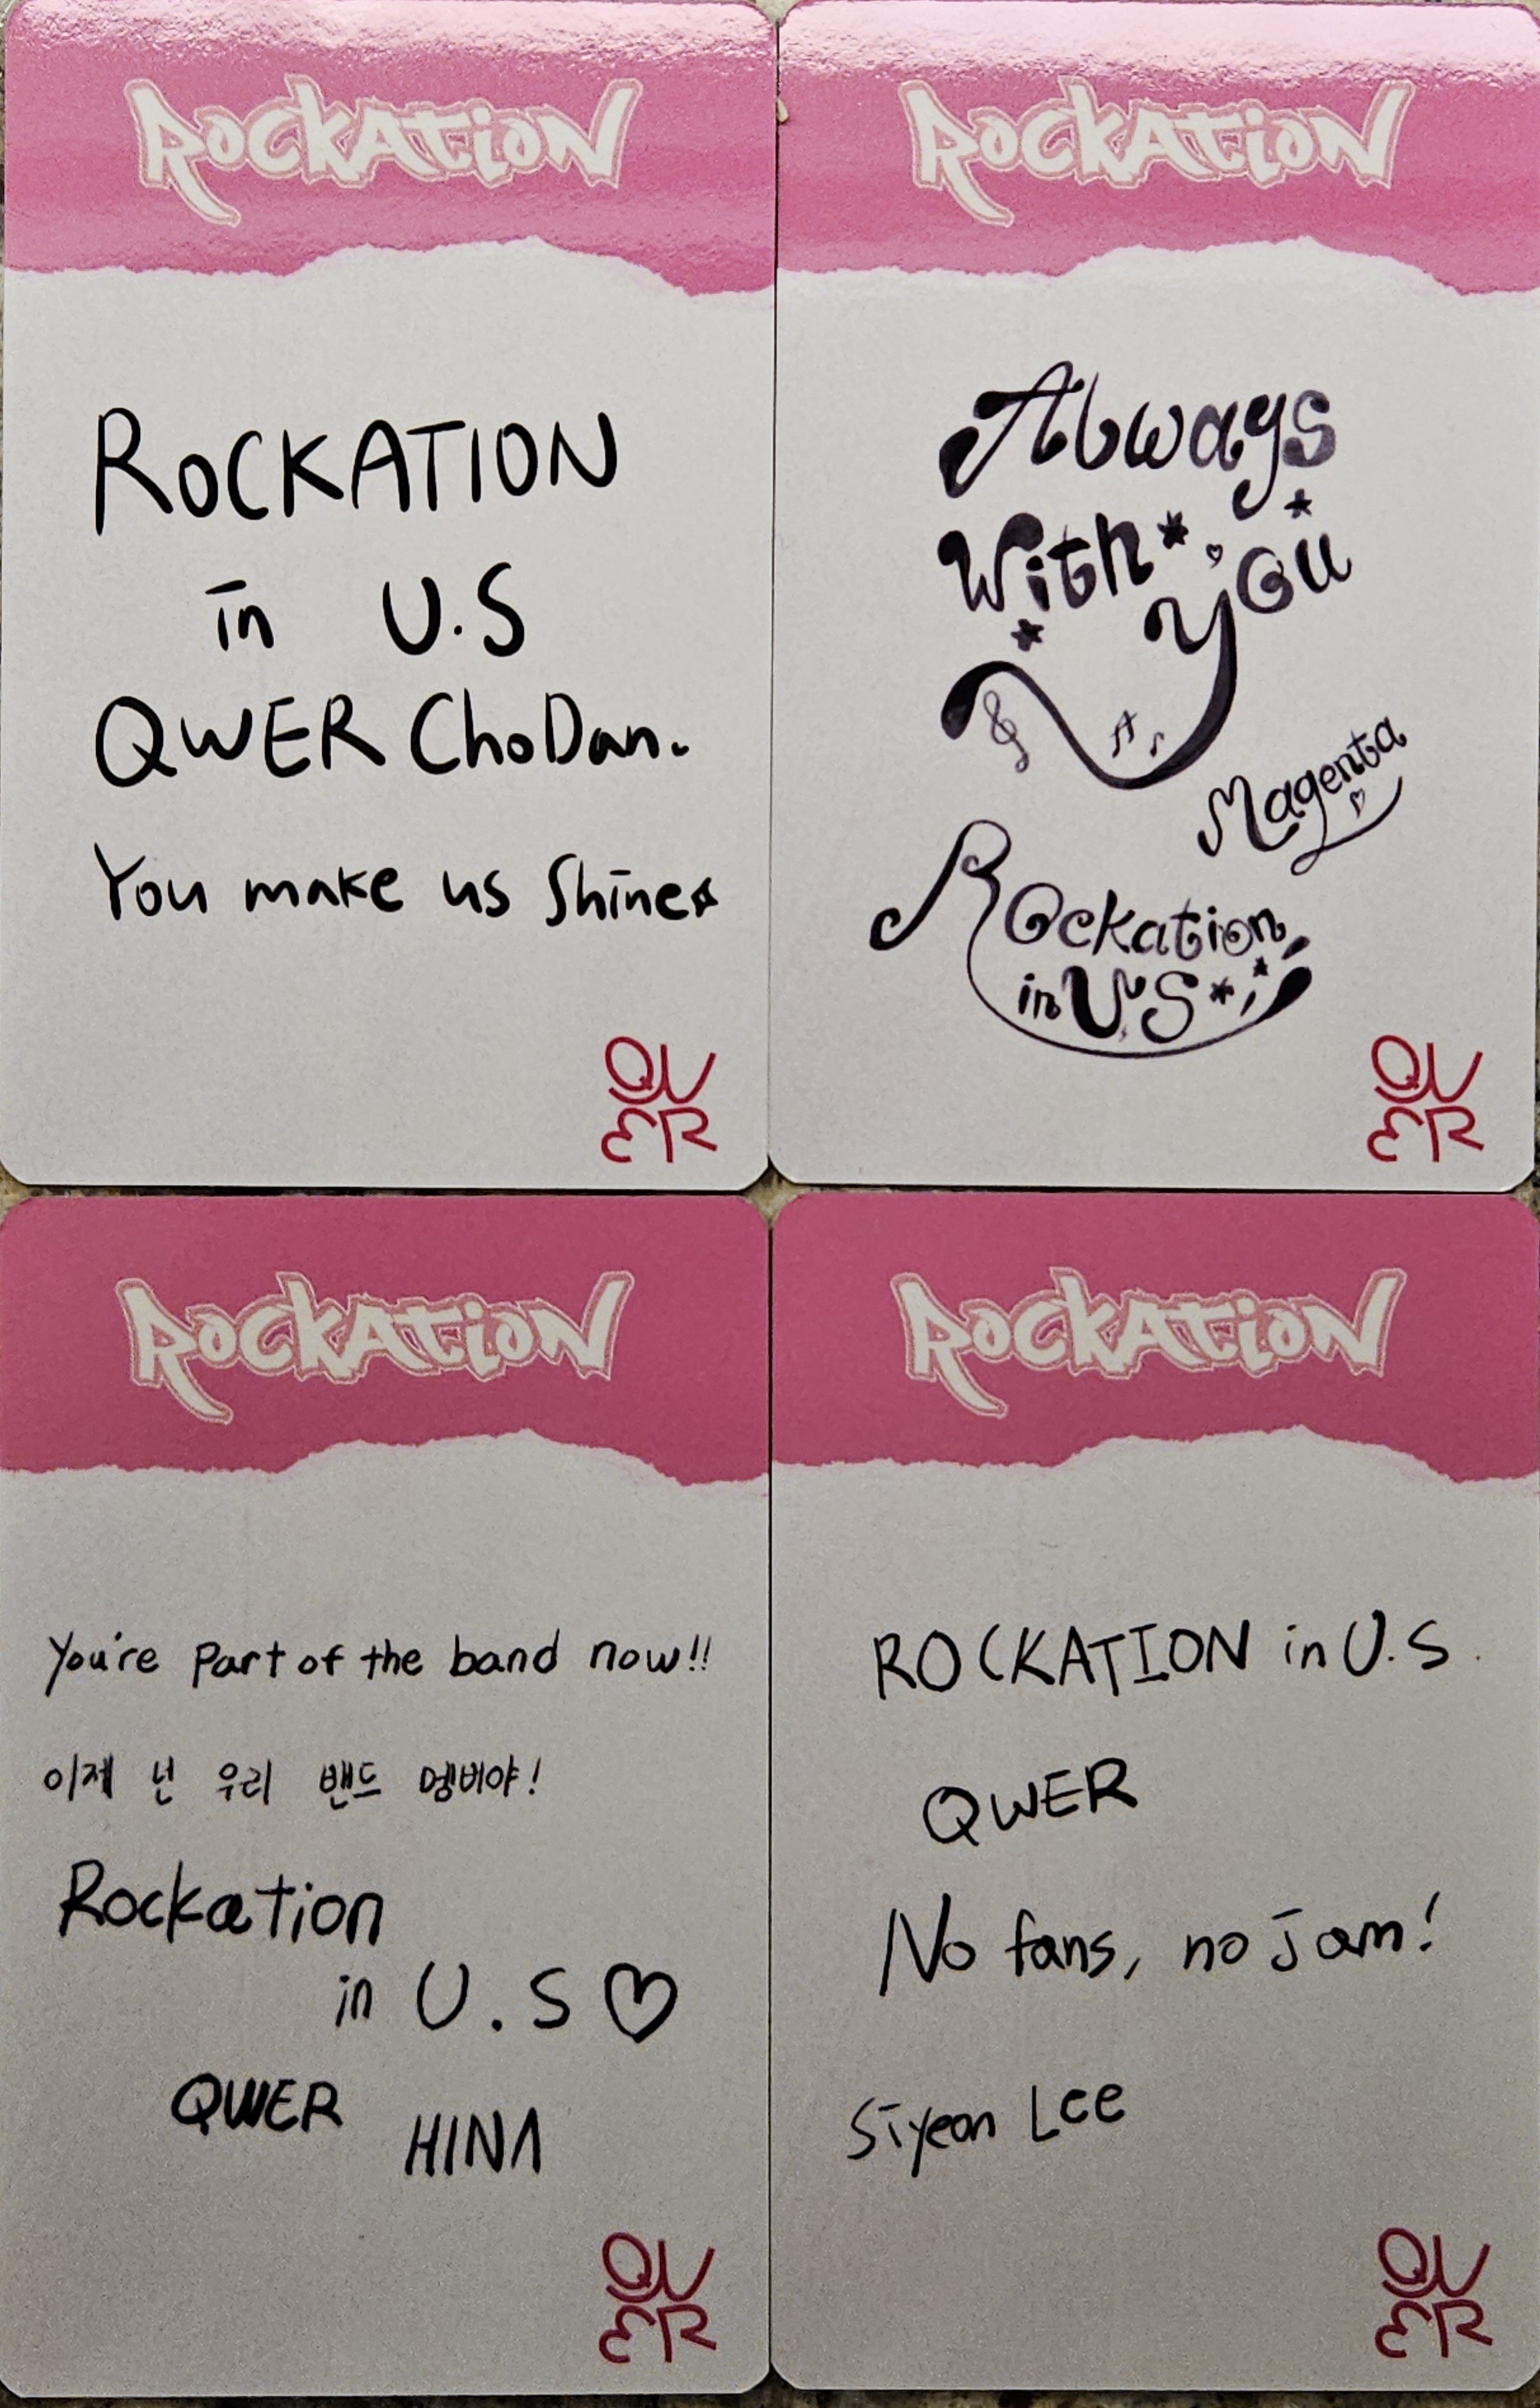 ROCKATION
ROCKATION
in U.S
QWER ChoDan.
You make us Shine☆
QW
ER
ROCKATION
Always
With You
Magenta
Rockation
in U.S
QW
ER
ROCKATION
You're part of the band now!!
이제 넌 우리 밴드 멤버야!
Rockation
in U.S♡
QWER HINA
QW
ER
ROCKATION
ROCKATION in U.S.
QWER
No fans, no jam!
Siyeon Lee
QW
ER